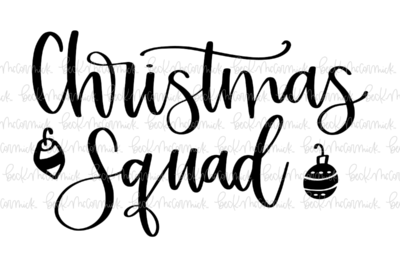 Christmas
Squad